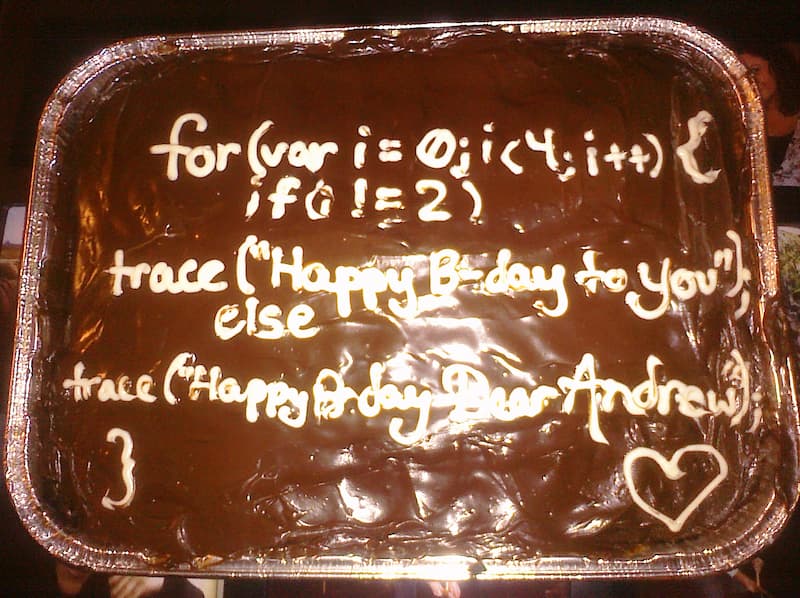 for(var i = 0; i < 4; i++) {
if(i != 2)
trace("Happy B-day to You");
else
trace("Happy B-day Dear Andrew");
}